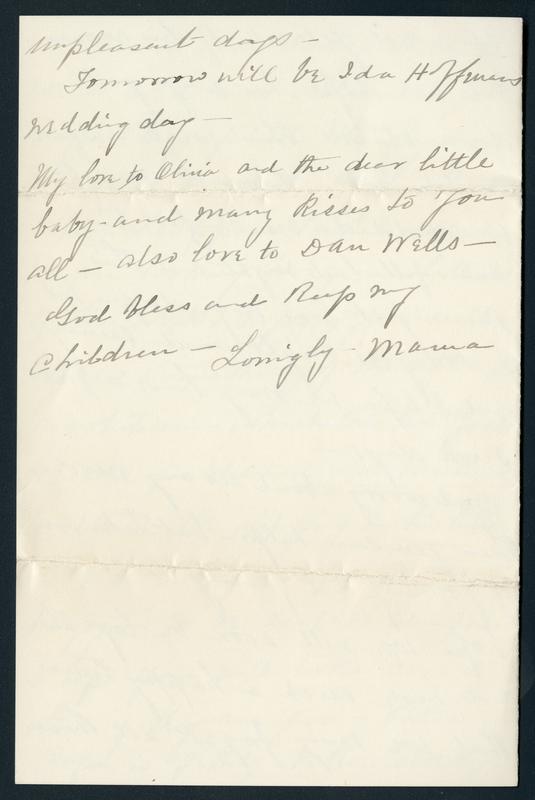 unpleasant days -
Tomorrow will be Ida Hoffmans
wedding day -
My love to Olivia and the dear little
baby - and many Kisses to You
all - also love to Dan Wells -
God bless and Keep my
Children - Lovingly - Mama